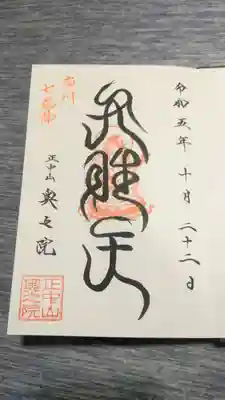 令和五年 十月 二十二日
弁財天
市川
七福神
正中山 奥之院
正中山
奥之院